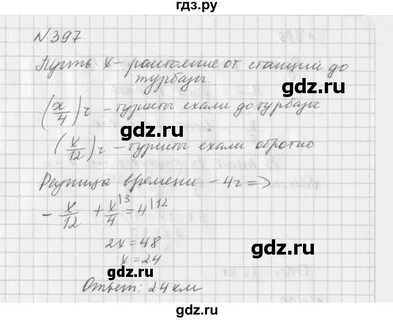 №397.
Пусть x - расстояние от станции до
турбазы
(x/4) ч - туристы ехали до турбазы
(x/12) ч - туристы ехали обратно
Разница времени - 4ч =>
- x/12 + x/4 |3 = 4 |12
2x = 48
x = 24
Ответ: 24 км
gdz.ru
gdz.ru
gdz.ru
gdz.ru